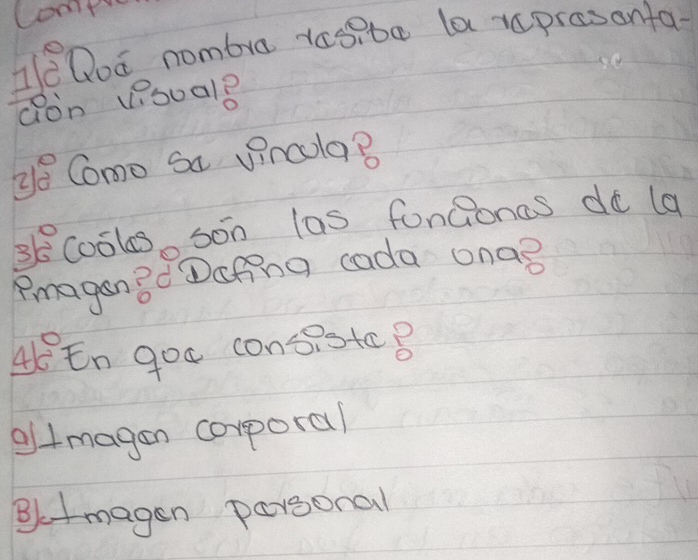 1) ¿Qué nombre resibe la representa-
ción visual?
2) ¿Como se vincula?
3) ¿Cuáles son las funciones de la
imagen? ¿Defina cada una?
4) ¿En que consiste?
a) Imagen corporal
B) Imagen personal